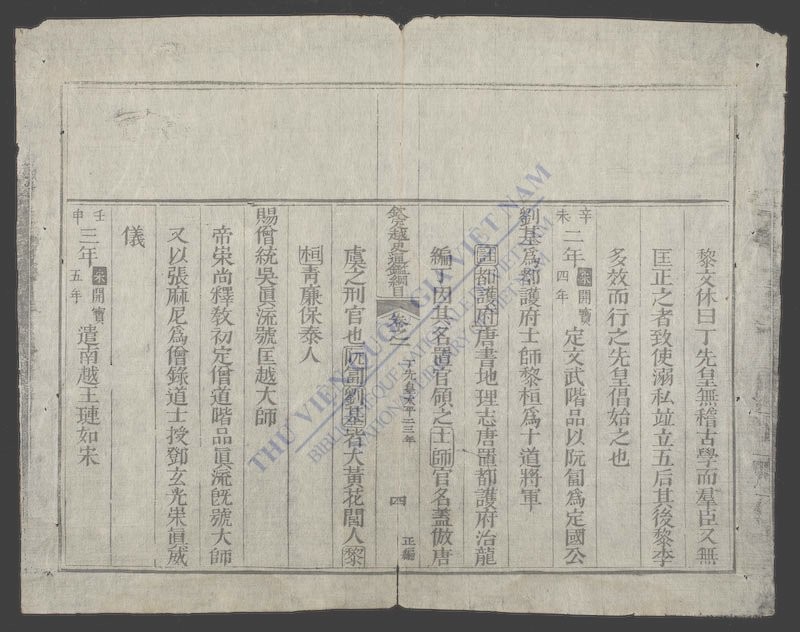 黎文休曰丁先皇無稽古學而羣臣又無
匡正之者致使溺私竝立五后其後黎李
多效而行之先皇倡始之也
辛未二年宋開寶四年定文武階品以阮匐爲定國公
劉基爲都護府士師黎桓爲十道將軍
註都護府唐書地理志唐置都護府治龍
編丁因其名置官領之士師官名蓋倣唐
欽定越史通鑑綱目 卷之一 丁先皇太平二三年 四 正編
虞之刑官也阮匐劉基者大黃花閭人黎
桓青廉保泰人
賜僧統吳眞流號匡越大師
帝崇尚釋敎初定僧道階品眞流旣號大師
又以張麻尼爲僧錄道士授鄧玄光崇眞威
儀
壬申三年宋開寶五年遣南越王璉如宋
THƯ VIỆN QUỐC GIA VIỆT NAM
BIBLIOTHÈQUE NATIONALE DU VIETNAM
NATIONAL LIBRARY OF VIETNAM